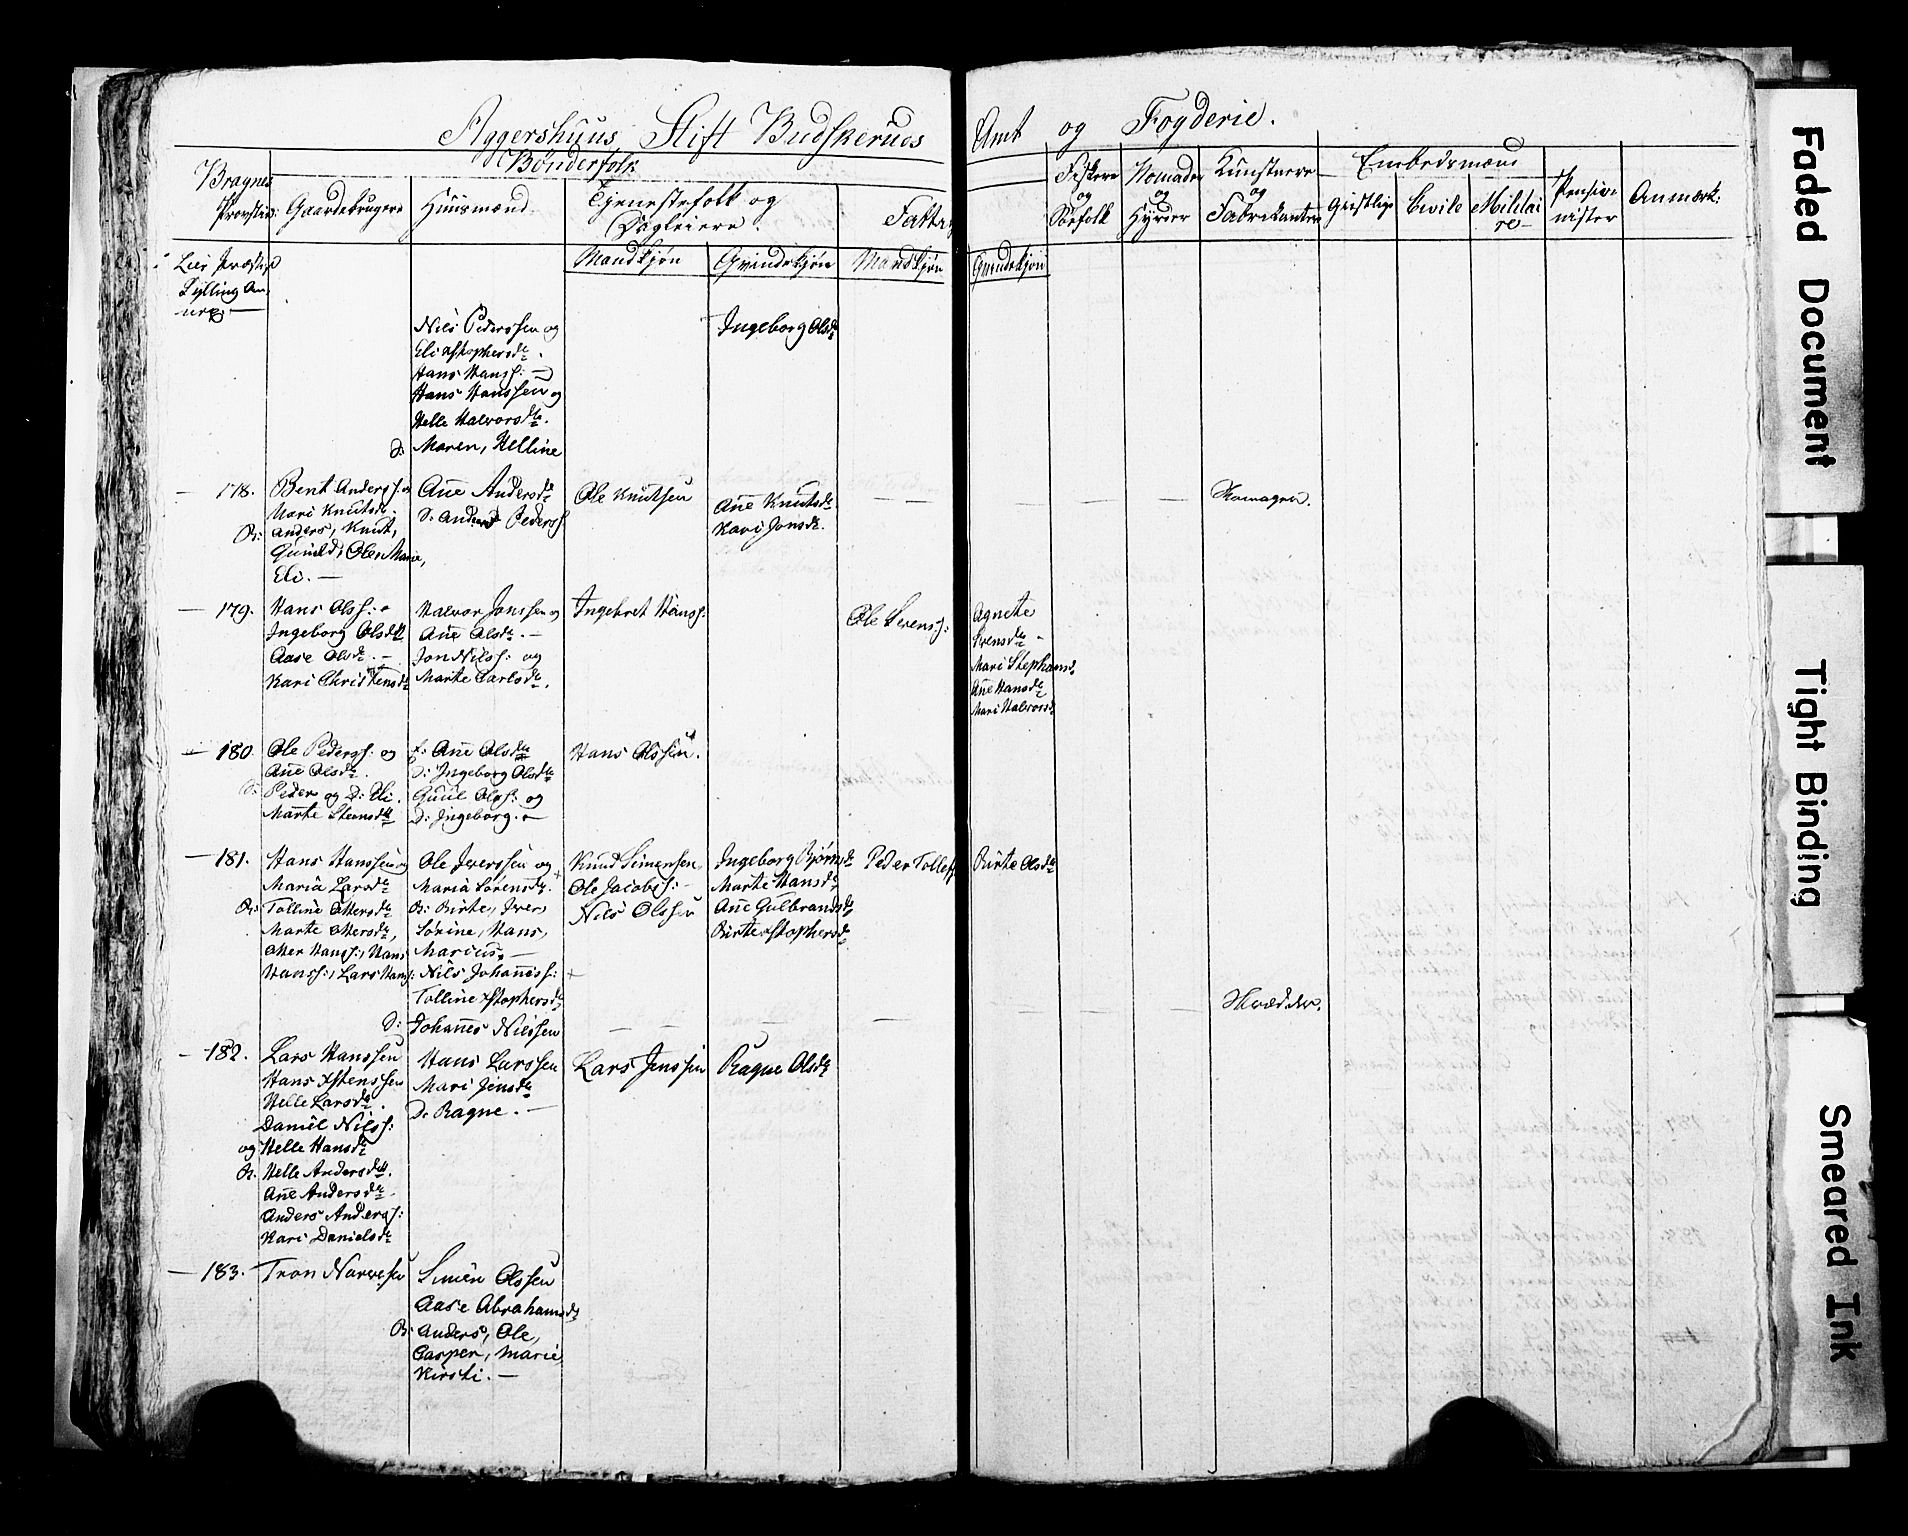 Aggershuus Stift Budskeruds Amt og Fogderie.
Bragnes
Provstie
Bønderfolk
Gaardebrugere
Huusmænd
Tjenestefolk og
Dagleiere.
Mandkjøn
Qvindekjøn
Fattige
Mandkjøn
Qvindekjøn
Fiskere
og
Søefolk
Nomader
og
Hyrder
Kunstnere
og
Fabrikanter
Embedsmænd
Geistlige
Civile
Militai
re
Pensio
nister
Anmærk:
Lier Præstegd
Sylling An
nex.
Nils Pederssen og
Eli xstophersdr.
Hans Hanss: —
Hans Hanssen og
Helle Halvorsdr.
D: Maren, Helline
Ingeborg Olsdr
— 178.
Bent Anderss: og
Mari Knutsdr.
B: Anders, Knut,
Gunild, Ole, Marie,
Eli. —
Anne Andersdr
S: Anders Pederss.
Ole Knutsen
Anne Knutsdr
Kari Jonsdr.
Skomager.
— 179.
Hans Olss: o
Ingeborg Olsdr
Aase Olsdr. —
Kari Christensdr
Halvor Jonssen og
Anne Olsdr. —
Jon Nilss: og
Marte Carlsdr.
Ingebret Hanss:
Ole Svenss:
Agnete
Svensdr —
Mari Stephansdr
Anne Hansdr
Mari Halvorsdr
— 180.
Ole Pederss: og
Anne Olsdr.
S: Peder og D: Eli.
Marte Steensdr
E: Anne Olsdr
D: Ingeborg Olsdr
Guul Olss: og
D: Ingeborg. —
Hans Olssen.
— 181.
Hans Hanssen og
Maria Larsdr
B: Tolline Ottersdr
Marte Ottersdr,
Otter Hanss:, Hans
Hanss:, Lars Hanss:
Ole Iverssen og
Maria Sørensdr.
B: Birte, Iver,
Sørine, Hans,
Marcus. —
Nils Johaness:
Tolline xstophersdr
S: Johanes Nilssen
Knud Simensen
Ole Jacobs: —
Nils Olssen
Ingeborg Bjørnsdr
Marte Hansdr
Anne Gulbrandsdr
Birte xstophersdr.
Peder Tollefs
Birte Olsdr
Skrædder.
— 182.
Lars Hanssen
Hans xstenssen
Helle Larsdr.
Daniel Nilss:
og Helle Hansdr
B: Helle Andersdr.
Anne Andersdr.
Anders Anderss:
Kari Danielsdr
Hans Larssen
Mari Jensdr
D: Ragne. —
Lars Jenssen
Ragne Olsdr
— 183.
Tron Narvesen
Simen Olssen
Aase Abrahamsdr
B: Anders, Ole,
Casper, Marie
Kirsti. —
Faded Document
Tight Binding
Smeared Ink